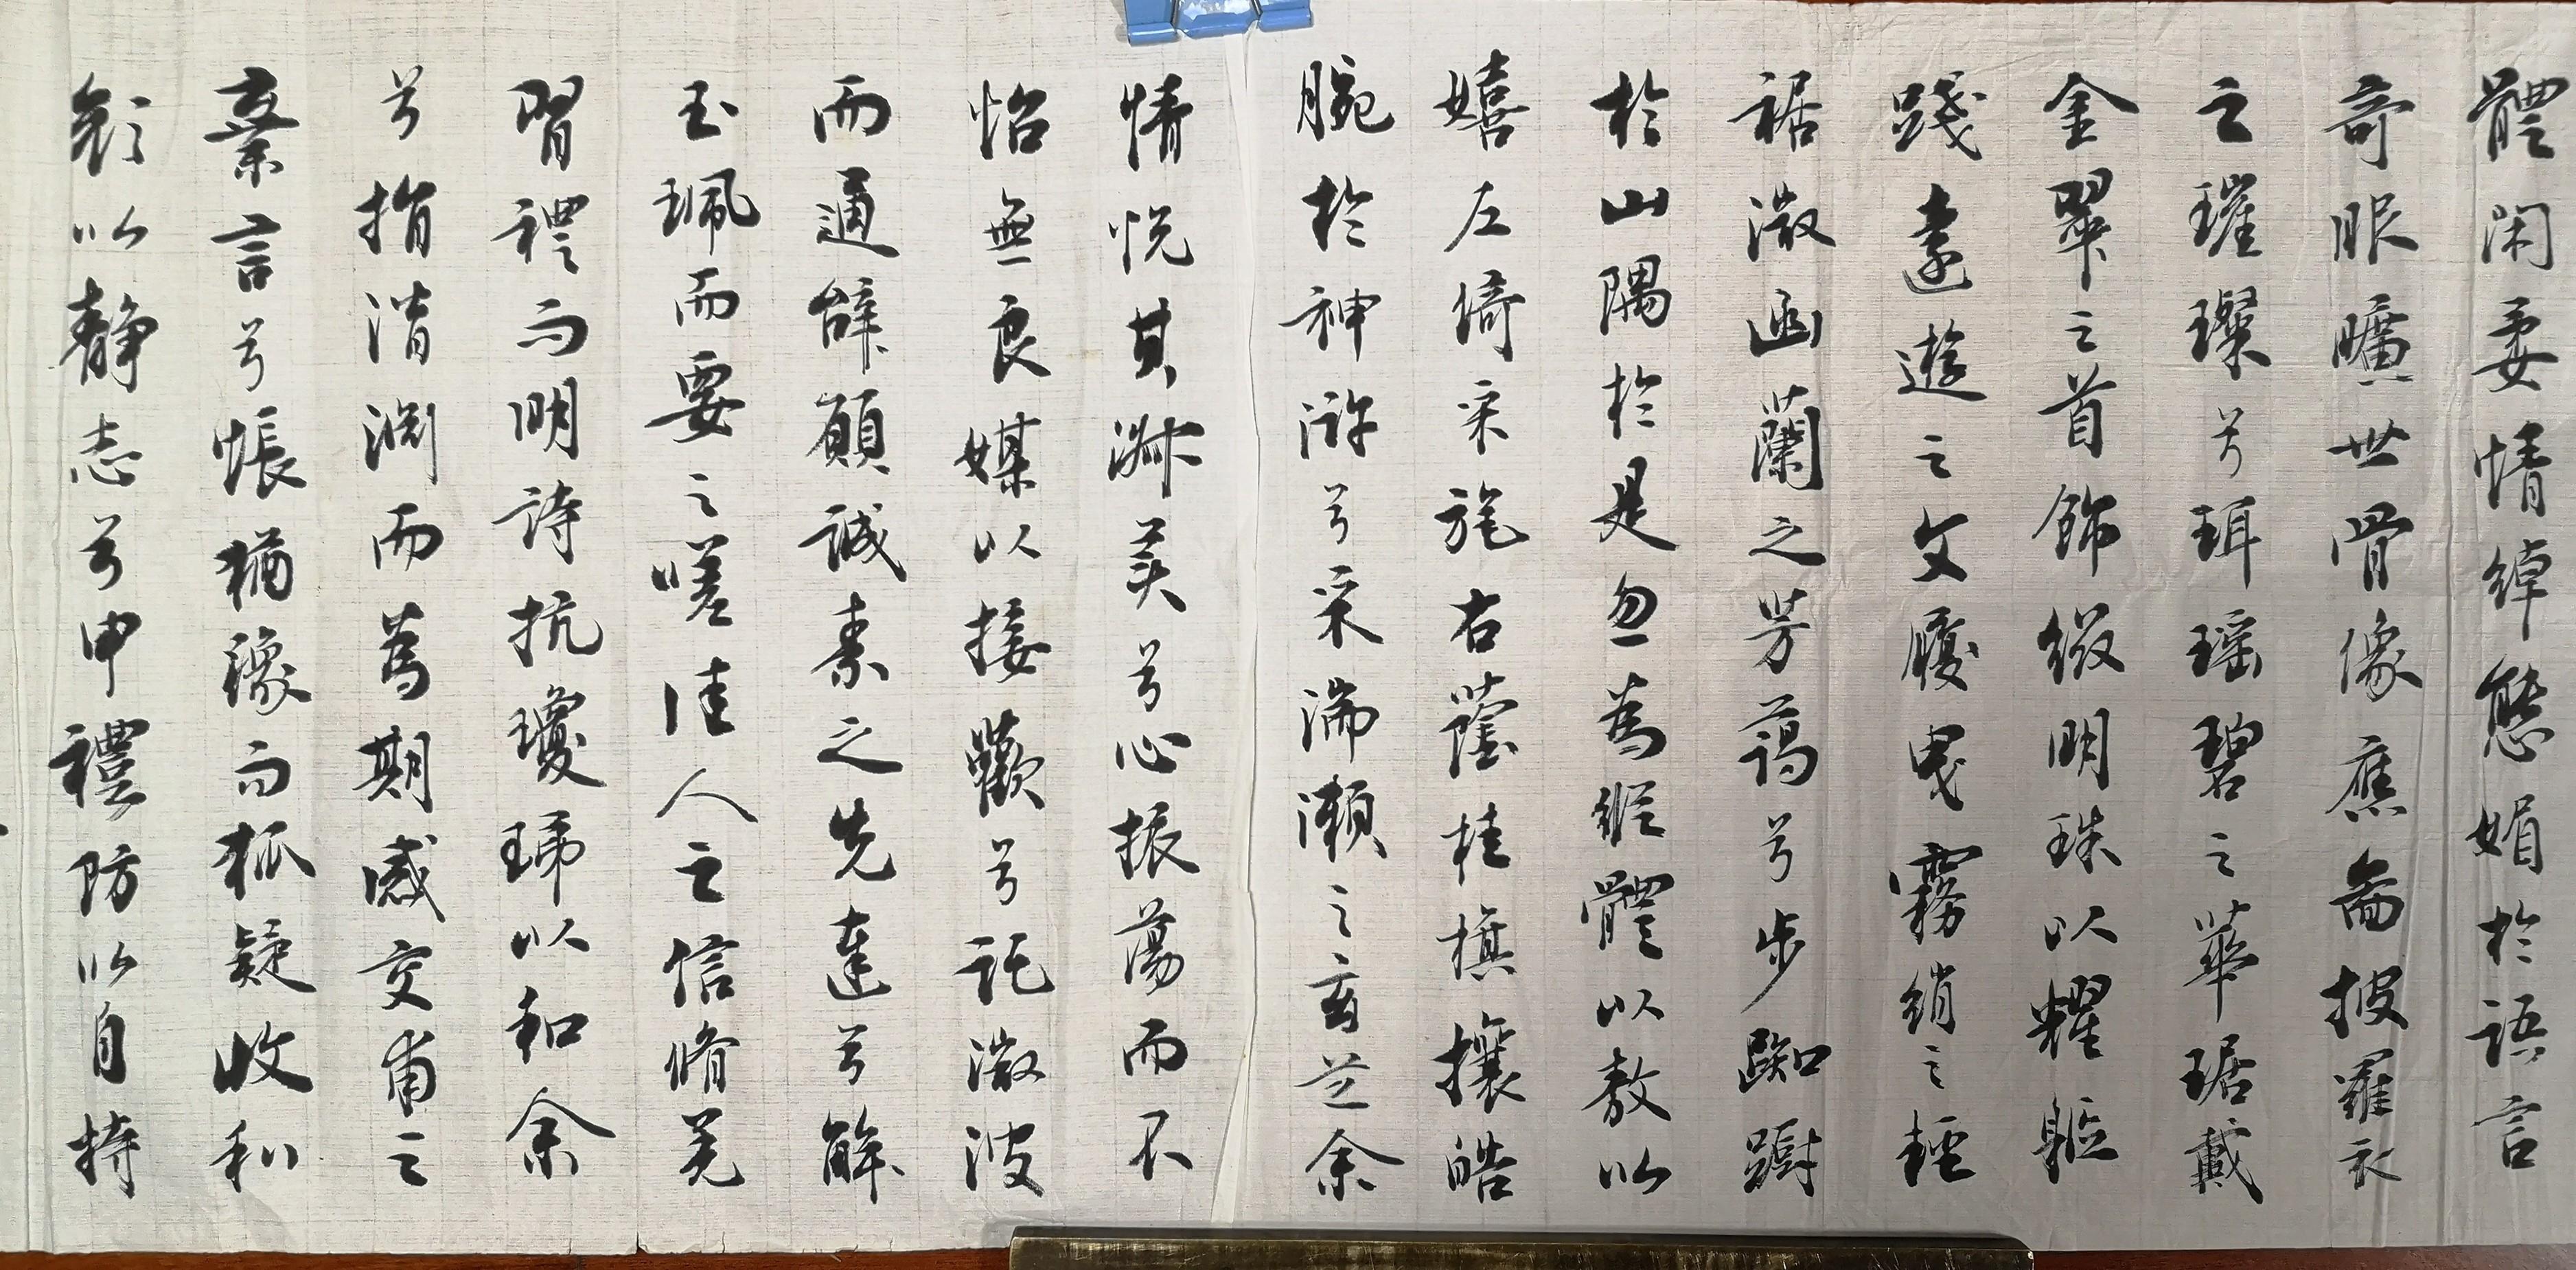 體閑柔情綽態媚於語言
奇服曠世骨像應圖披羅衣
之璀璨兮珥瑶碧之華琚戴
金翠之首飾綴明珠以耀軀
踐遠遊之文履曳霧綃之輕
裾微幽蘭之芳藹兮步踟躕
於山隅於是忽焉縱體以敖以
嬉左倚采旄右蔭桂旗攘皓
腕於神滸兮采湍瀬之玄芝余
情悦其淑美兮心振蕩而不
怡無良媒以接歡兮託微波
而通辭願誠素之先達兮解
玉珮而要之嗟佳人之信脩羌
習禮而明詩抗瓊珶以和余
兮指潛淵而為期感交甫之
棄言兮悵猶豫而狐疑收和
顔以靜志兮申禮防以自持